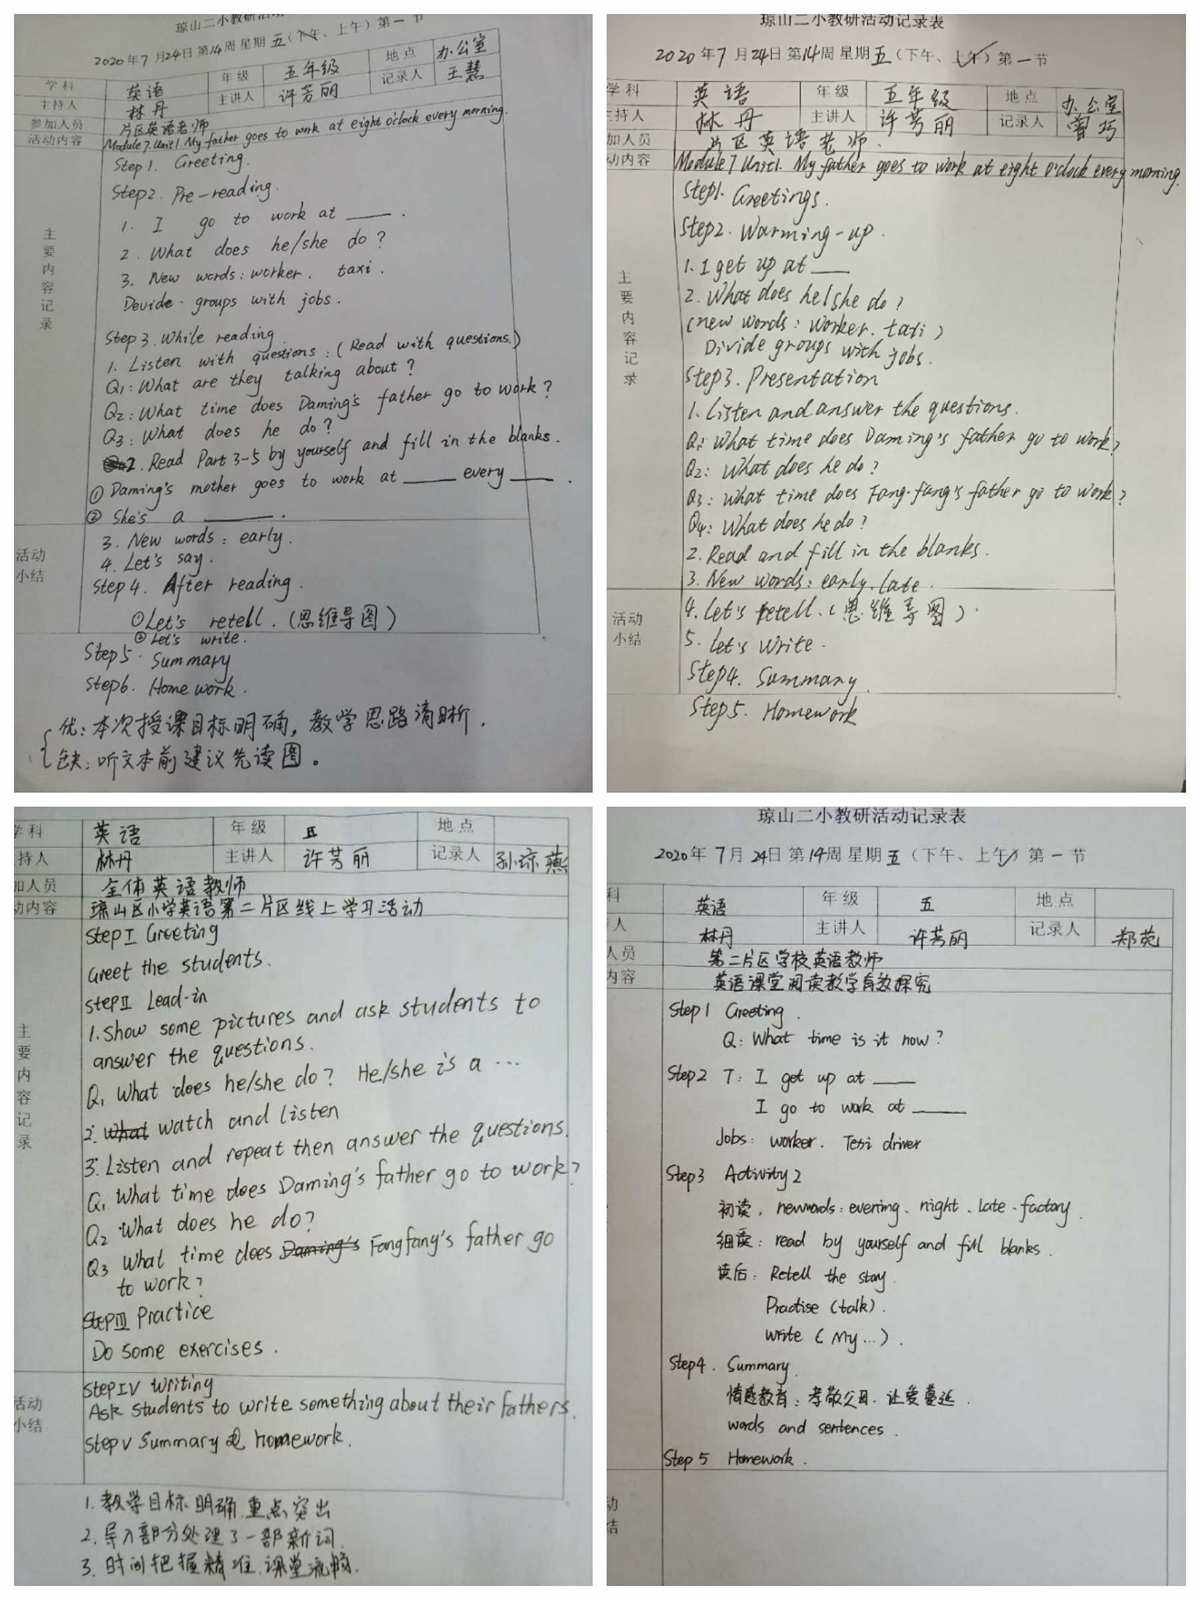 琼山二小教研活动
2020年7月24日第14周 星期五（下午、上午）第一节
学科 英语 年级 五年级 地点 办公室
主持人 林丹 主讲人 许芳丽 记录人 王慧
参加人员 片区英语老师
活动内容 Module 7 Unit1 My father goes to work at eight o'clock every morning.
主要内容记录
Step 1. Greeting.
Step2. Pre-reading.
1. I go to work at ____.
2. What does he/she do?
3. New words: worker. taxi.
Devide groups with jobs.
Step 3. While reading
1. Listen with questions: (Read with questions.)
Q1: What are they talking about?
Q2: What time does Daming's father go to work?
Q3: What does he do?
2. Read Part 3-5 by yourself and fill in the blanks.
① Daming's mother goes to work at ____ every ____.
② She's a ____.
活动小结
3. New words: early.
4. Let's say.
Step 4. After reading.
①Let's retell. (思维导图)
②Let's write.
Step5. Summary
Step6. Home work.
优：本次授课目标明确，教学思路清晰.
缺：听文本前建议先读图。
琼山二小教研活动记录表
2020年7月24日第14周 星期五（下午、上午）第一节
学科 英语 年级 五年级 地点 办公室
主持人 林丹 主讲人 许芳丽 记录人 曾巧
加人员 片区英语老师.
动内容 Module 7 Unit1. My father goes to work at eight o'clock every morning.
主要内容记录
Step1. Greetings.
Step2. Warming-up.
1. I get up at ____
2. What does he/she do?
(new words: worker. taxi)
Divide groups with jobs.
Step3. Presentation
1. Listen and answer the questions.
Q1: What time does Daming's father go to work?
Q2: What does he do?
Q3: What time does Fang fang's father go to work?
Q4: What does he do?
2. Read and fill in the blanks.
3. New words: early. late.
活动小结
4. Let's retell. (思维导图).
5. Let's write.
Step4. Summary.
Step5. Homework
学科 英语 年级 五 地点
持人 林丹 主讲人 许芳丽 记录人 孙琼燕
加人员 全体英语教师
动内容 琼山区小学英语第二片区线上学习活动
主要内容记录
Step I Greeting
Greet the students.
Step II Lead-in
1. Show some pictures and ask students to
answer the questions.
Q1 What does he/she do? He/she is a ...
2. What watch and listen
3. Listen and repeat then answer the questions.
Q1 What time does Daming's father go to work?
Q2 What does he do?
Q3 What time does Daming's Fangfang's father go
to work?
Step III Practice
Do some exercises.
活动小结
Step IV Writing
Ask students to write something about their fathers.
Step V Summary homework.
1. 教学目标明确.重点突出
2. 导入部分处理了一部新词.
3. 时间把握精准.课堂流畅.
琼山二小教研活动记录表
2020年7月24日第14周 星期五（下午、上午）第一节
科 英语 年级 五 地点
人 林丹 主讲人 许芳丽 记录人 郑苑
人员 第二片区学校英语教师
内容 英语课堂阅读教学有效探究
Step1 Greeting.
Q: What time is it now?
Step2 T: I get up at ____
I go to work at ____
Jobs: worker. Texi driver
Step3 Activity 2
初读. newwords: evering. night. late. factory.
细读: read by yourself and fill blanks.
读后: Retell the stoy.
Practise (talk).
write (My...).
Step4. Summary.
情感教育：孝敬父母.让爱蔓延.
words and sentences.
Step 5 Homework.
动
结